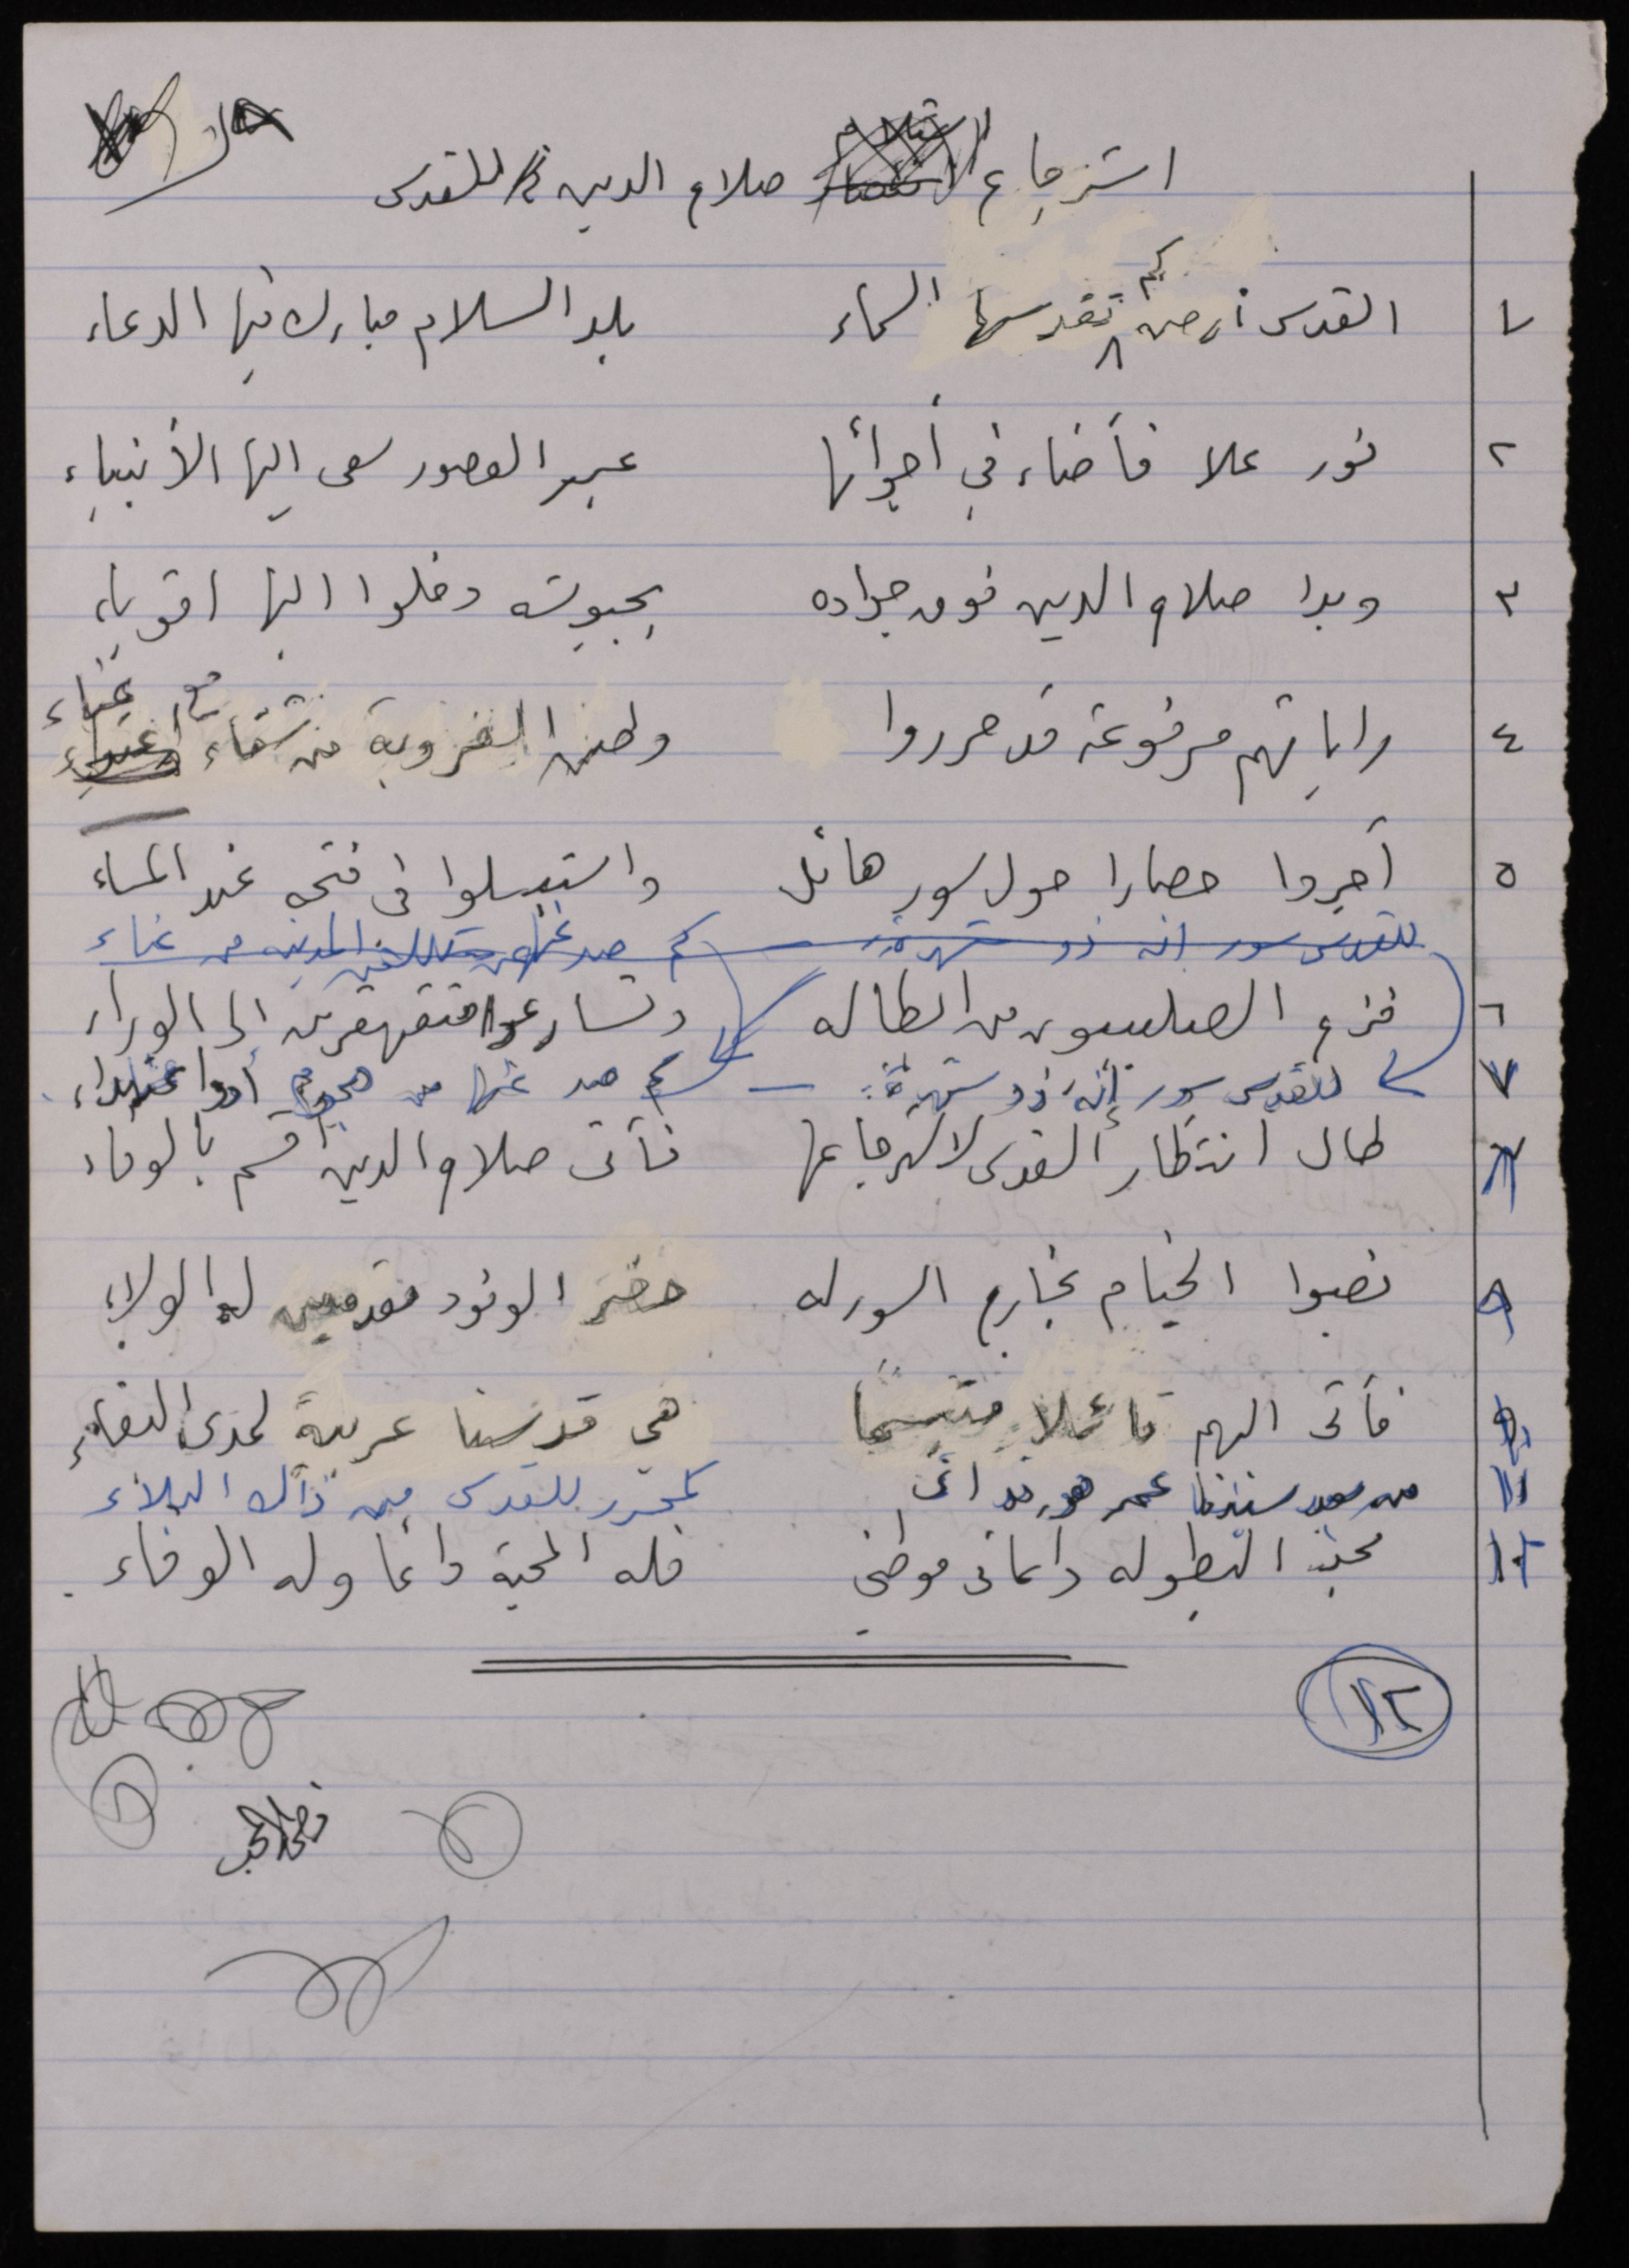 استرجاع صلاح الدين للقدس
١ القدس أرض كم تقدسها السماء بلد السلام مبارك فيها الدعاء
٢ نور علا فأضاء في أجوائها عبر العصور سعى اليها الأنبياء
٣ وبدا صلاح الدين فوق جواده بجيوشه دخلوا اليها اقوياء
٤ راياتهم مرفوعة قد حرروا وطن العروبة من شقاء
٥ أجروا حصارا حول سور هائل واستبسلوا في فتحه عند المساء
للقدس سور انه ذو شهرة كم صد عنها المدينة من عناء
٦ فزع الصليبيون من ابطاله وتسارعوا متقهقرين الى الوراء
٧ للقدس سور إنه ذو شهرة كم صد عنها من هجوم أو اعتداء
طال انتظار القدس لاسترجاعها فأتى صلاح الدين أقسم بالوفاء
٩ نصبوا الخيام بخارج السور له حضر الوفود مقدمين له الولاء
فأتى اليهم قائلا متبسما هي قدسنا عربية لمدى البقاء
١١ من بعد سيدنا عمر هو قد اتى كمحرر للقدس من ذاك البلاء
١٢ تحيا البطولة دائما في موطني فله المحبة دائما وله الوفاء
١٢